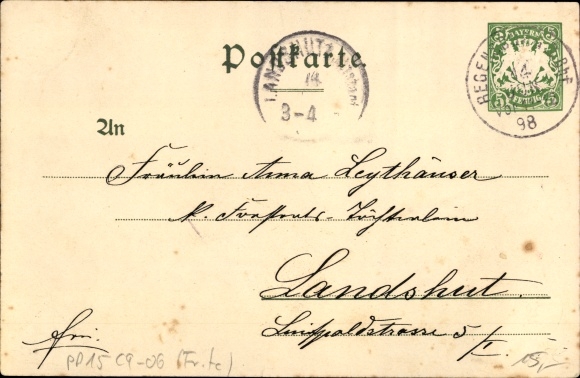 Postkarte.
BAYERN
5 5
LANDSHUT
14
3-4
98
An
Fräulein Anna Leythäuser
k. Forstrats-Töchterlein
Landshut.
Luitpoldstrasse 5/I.
frei.
PP15 C9-06 (Fr.tc)
15,-